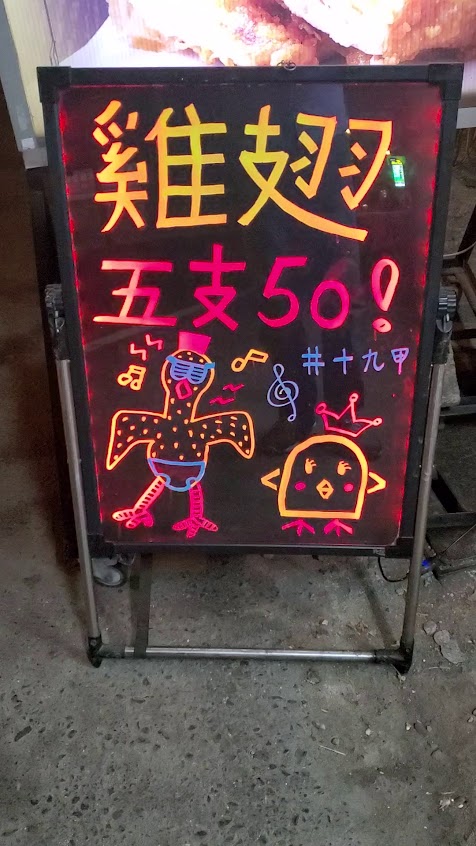 雞翅
五支50!
#十九甲